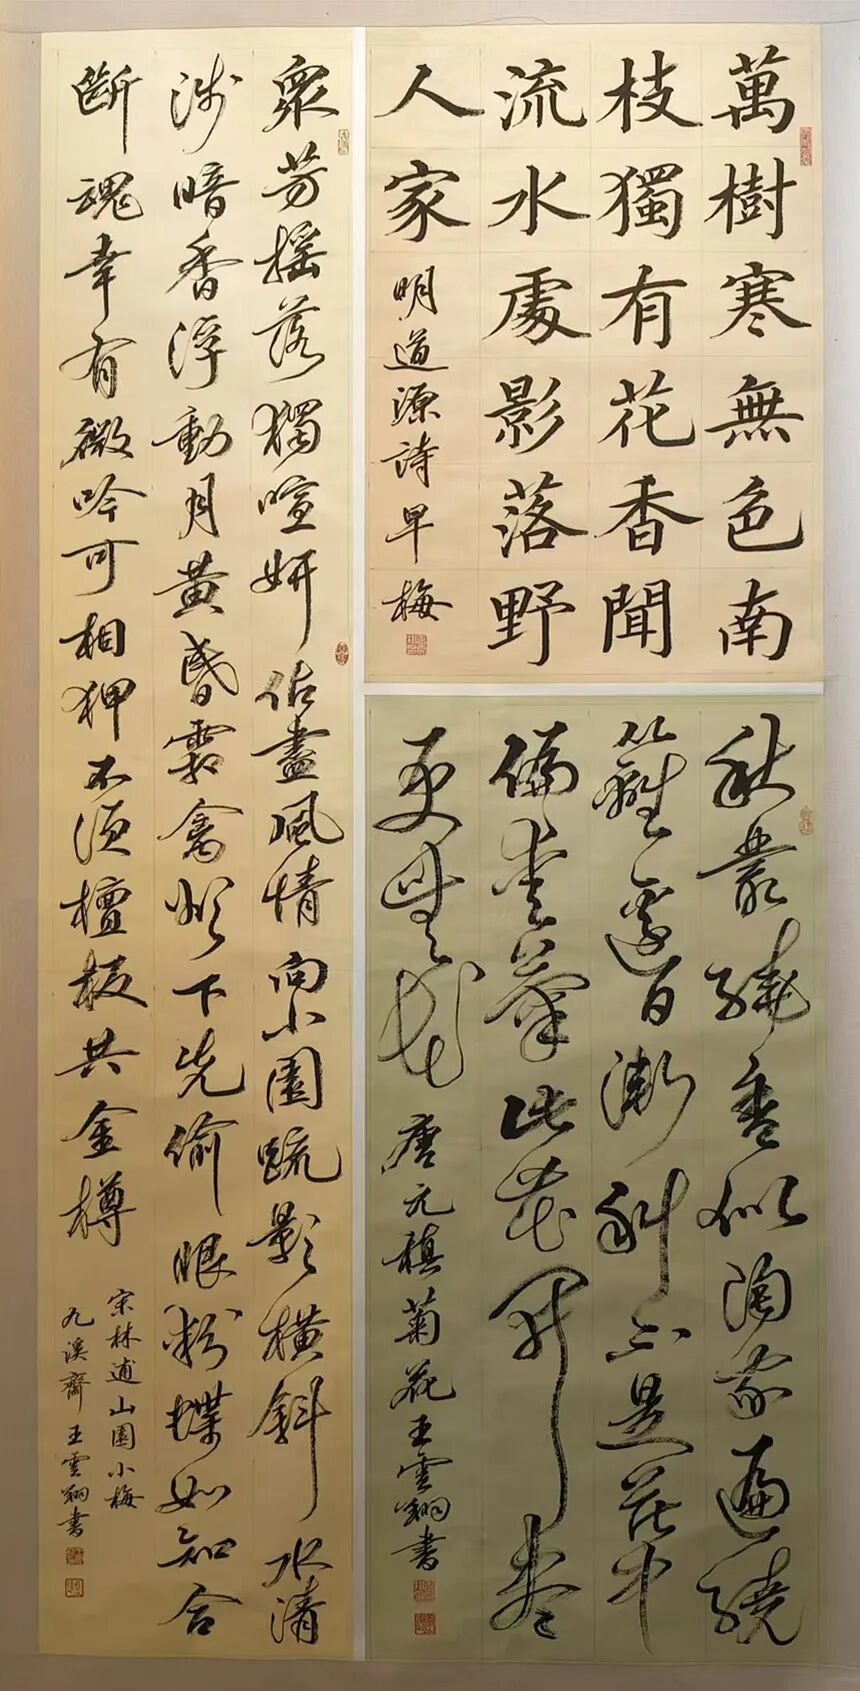 萬樹寒無色南
枝獨有花香聞
流水處影落野
人家 明道源詩早梅
秋叢繞舍似陶家遍繞
籬邊日漸斜不是花中
偏愛菊此花開盡
更無花 唐元稹菊花王雲翔書
衆芳搖落獨喧妍佔盡風情向小園疏影橫斜水清
淺暗香浮動月黃昏霜禽欲下先偷眼粉蝶如知合
斷魂幸有微吟可相狎不須檀板共金樽
宋林逋山園小梅
九溪齋王雲翔書